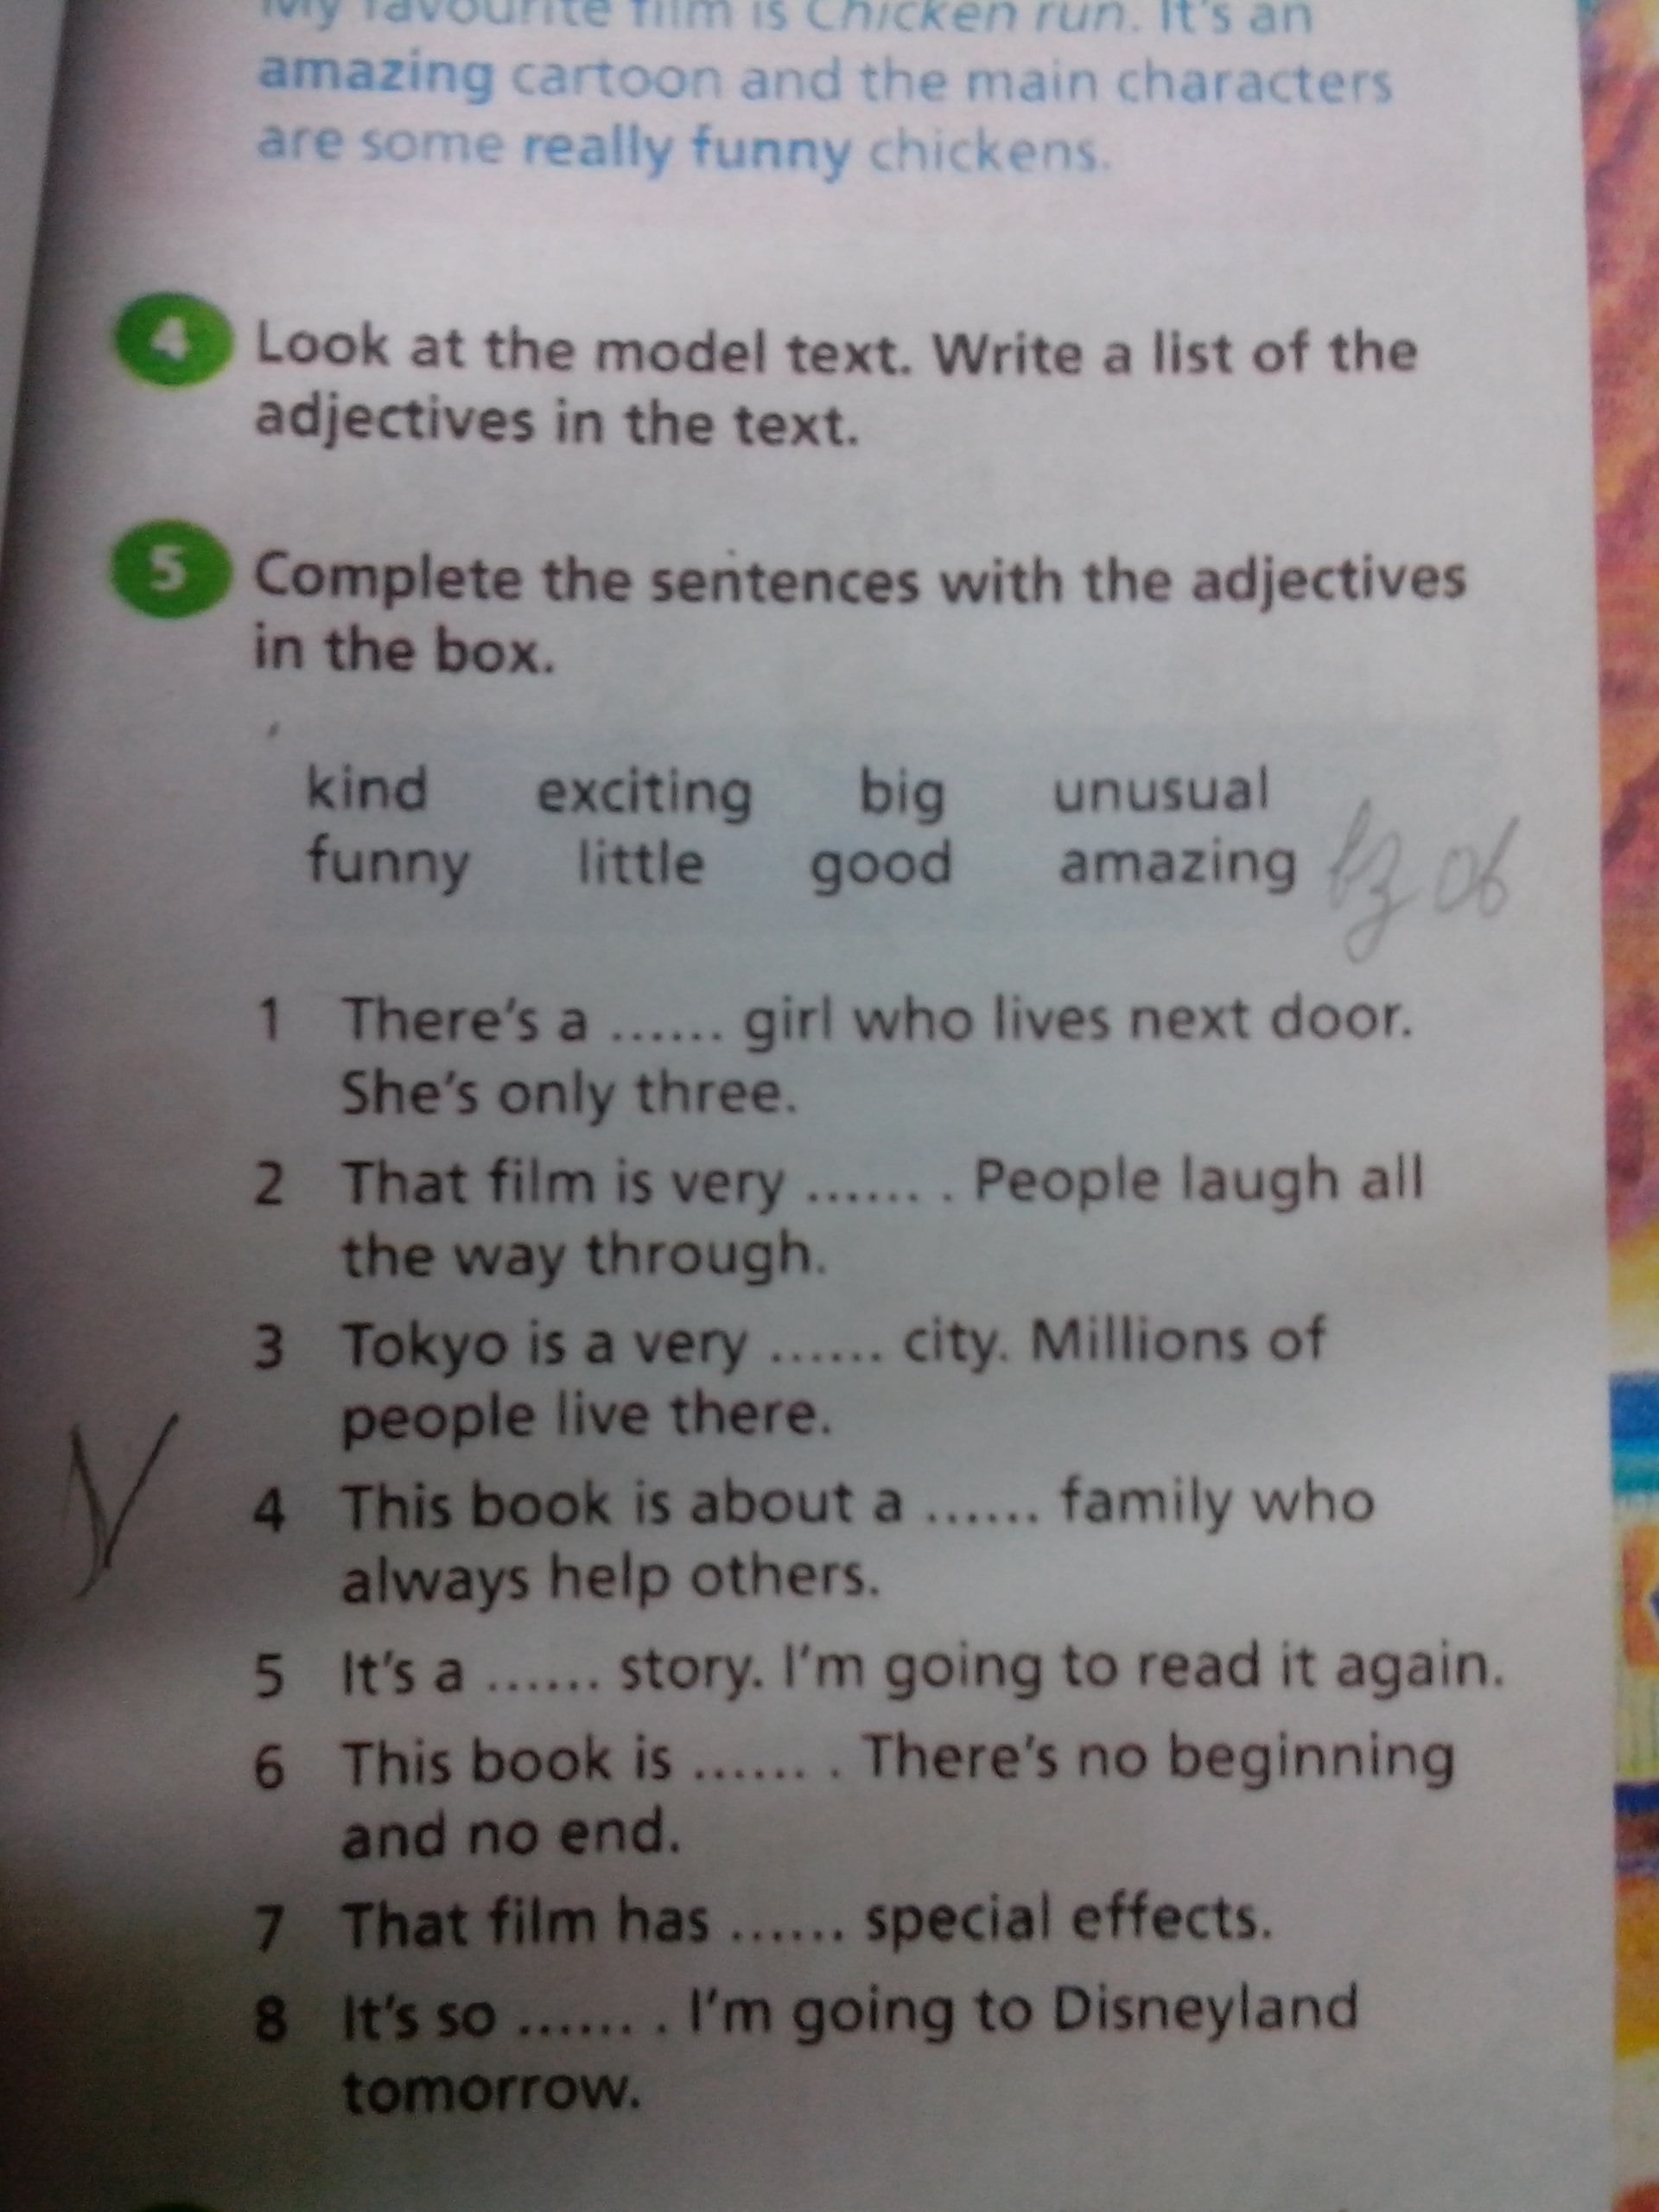 My favourite film is Chicken run. It's an
amazing cartoon and the main characters
are some really funny chickens.
4 Look at the model text. Write a list of the
adjectives in the text.
5 Complete the sentences with the adjectives
in the box.
kind exciting big unusual
funny little good amazing
1 There's a ...... girl who lives next door.
She's only three.
2 That film is very ...... . People laugh all
the way through.
3 Tokyo is a very ...... city. Millions of
people live there.
4 This book is about a ...... family who
always help others.
5 It's a ...... story. I'm going to read it again.
6 This book is ...... . There's no beginning
and no end.
7 That film has ...... special effects.
8 It's so ...... . I'm going to Disneyland
tomorrow.